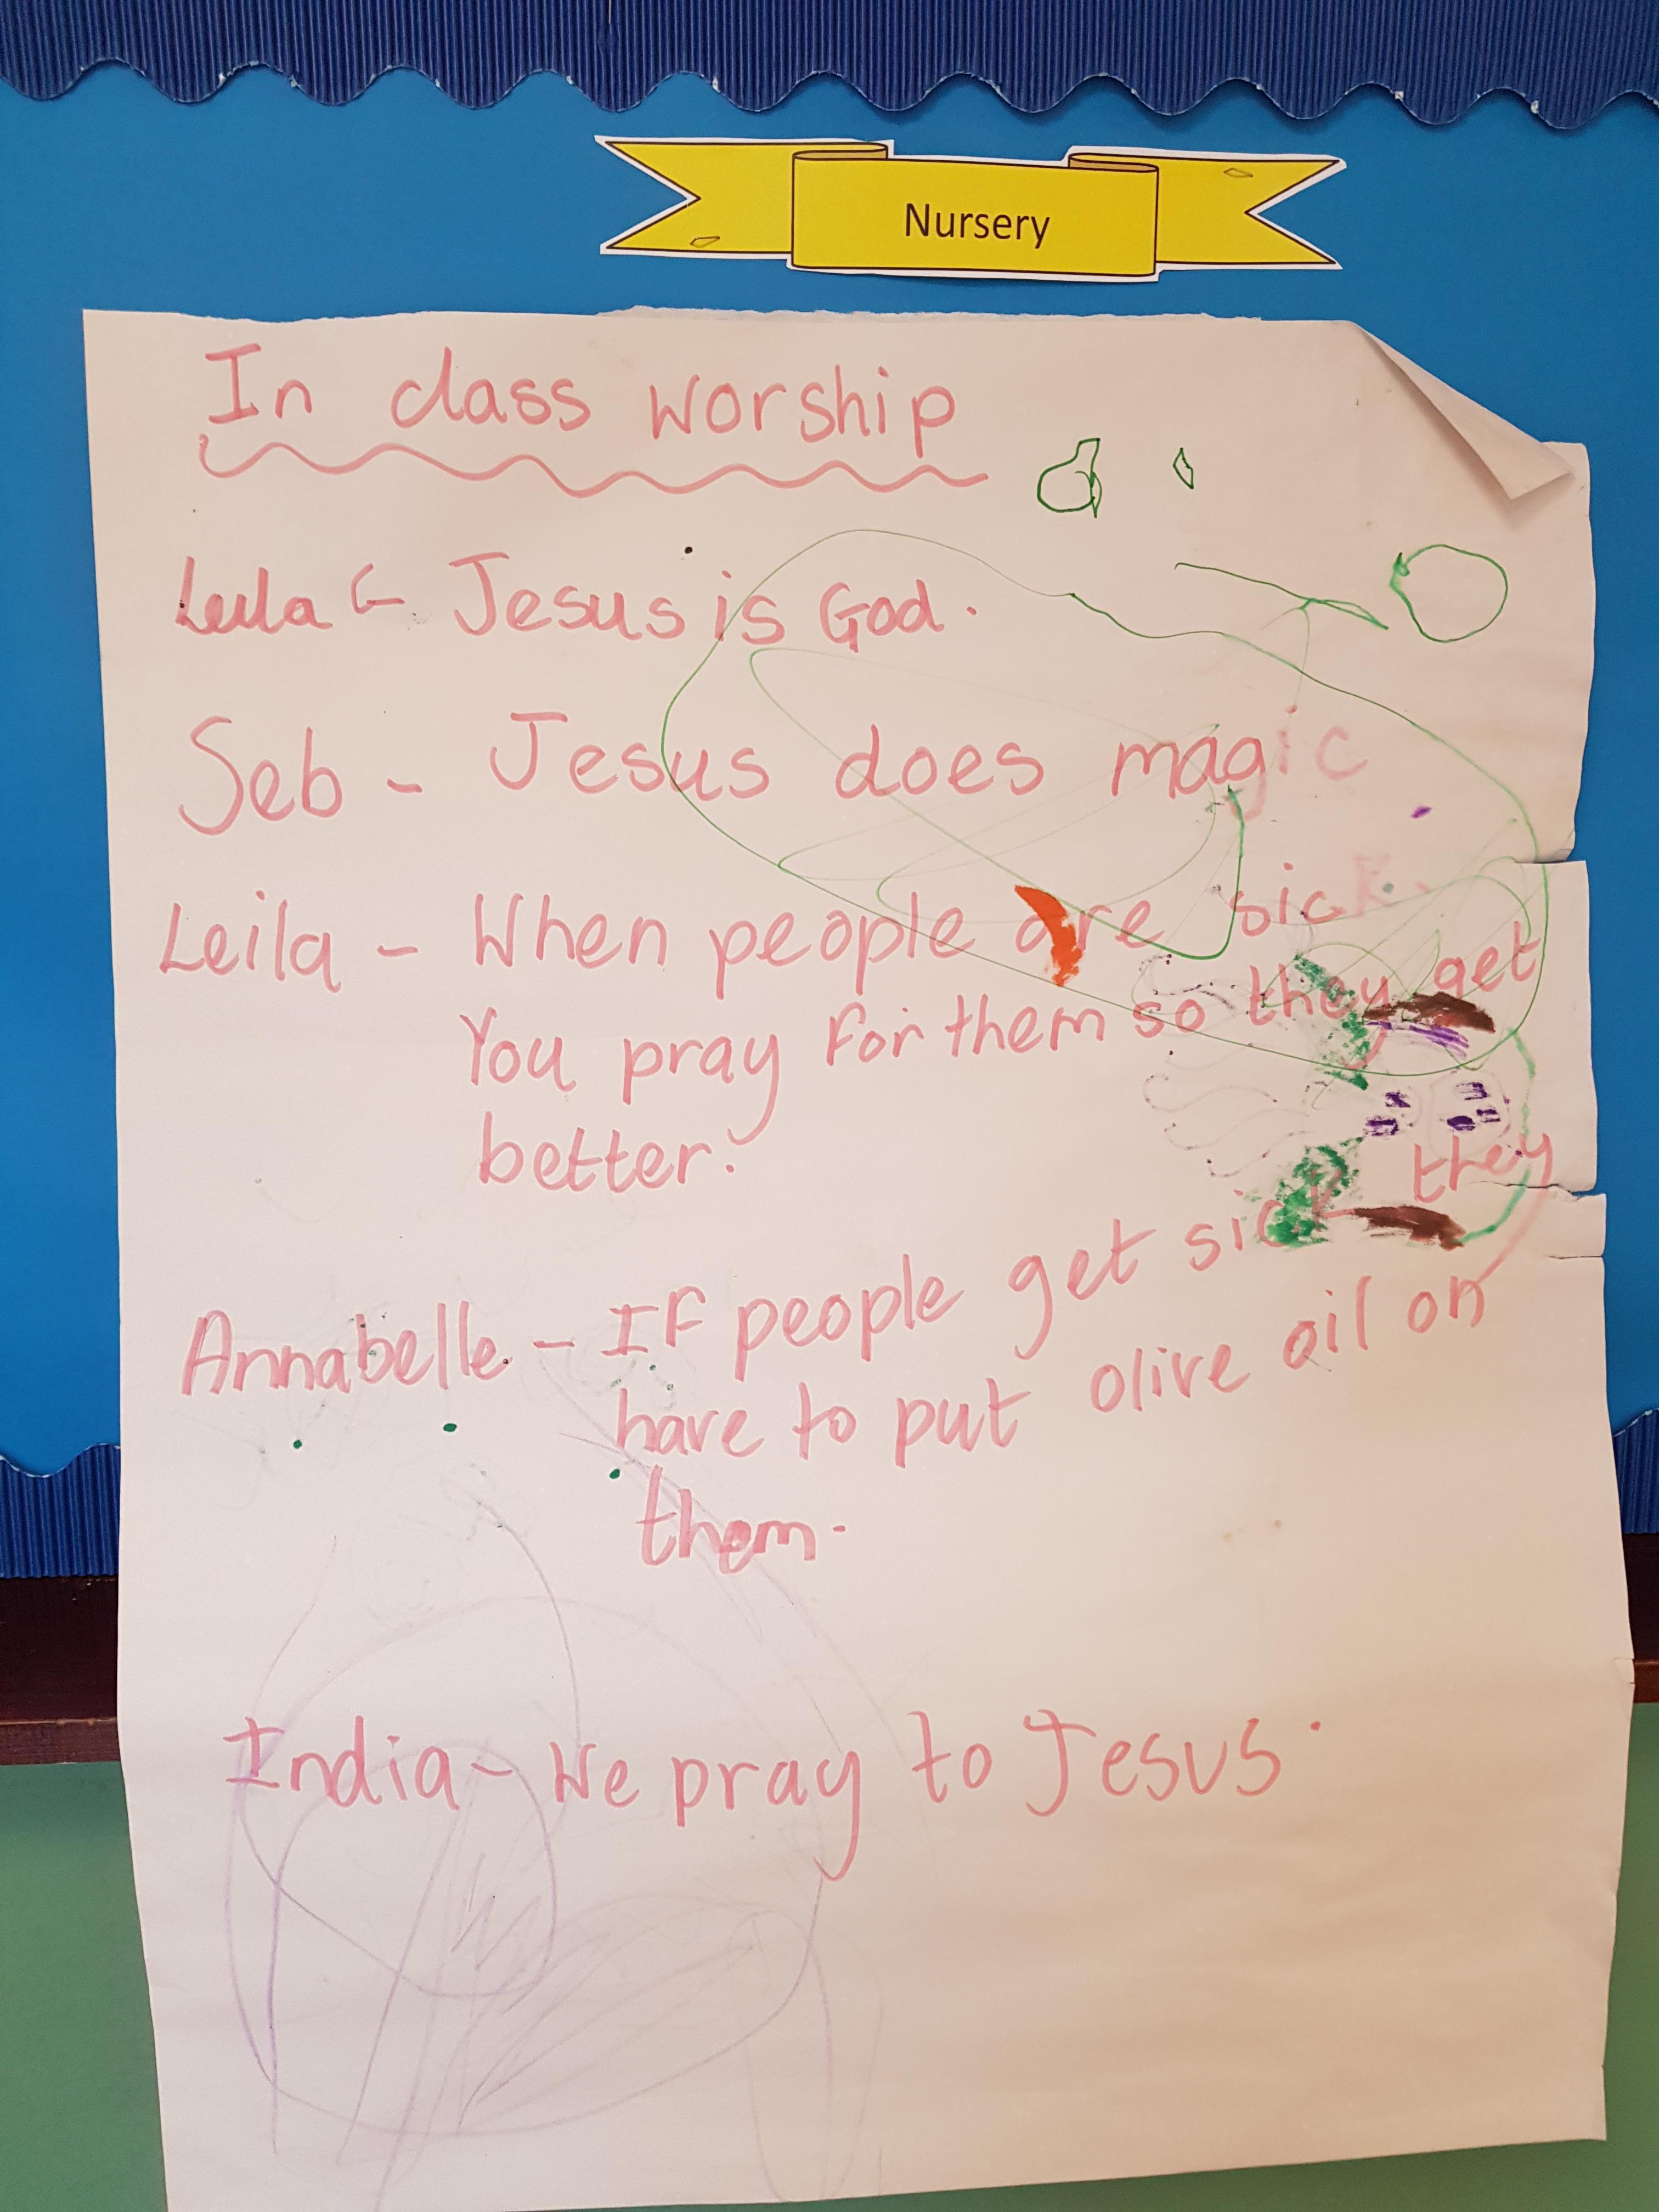 Nursery
In class worship
Leila G - Jesus is God.
Seb - Jesus does magic
Leila - When people are sick
You pray for them so they get
better.
Annabelle - If people get sick they
have to put olive oil on
them.
India - We pray to Jesus.